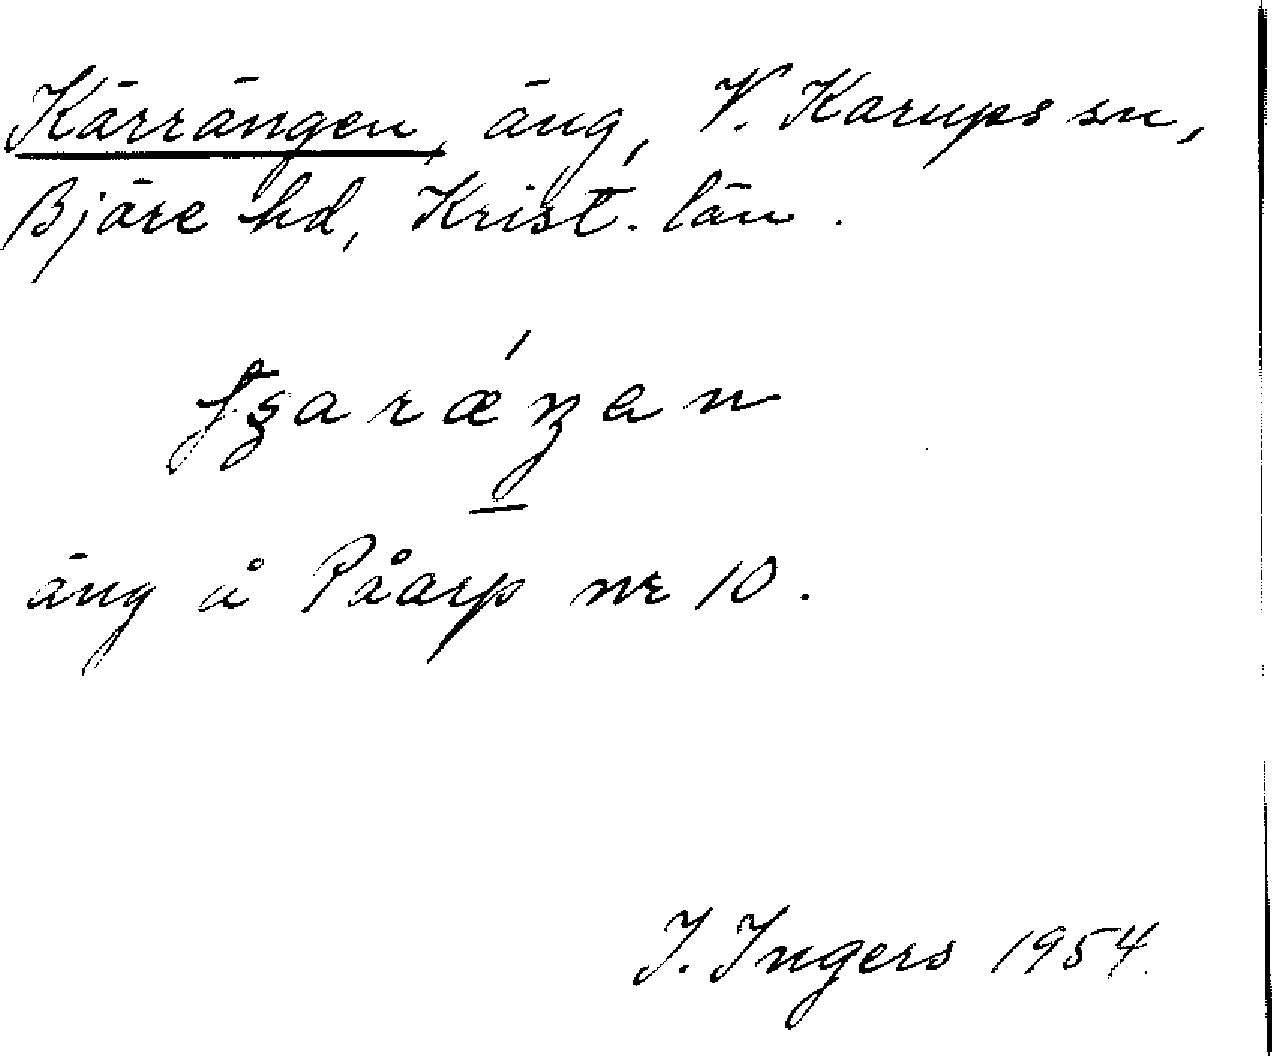 Kärrängen, äng, V. Karups sn,
Bjäre hd, Krist. län.
äng å Påarp nr 10.
I. Ingers 1954.